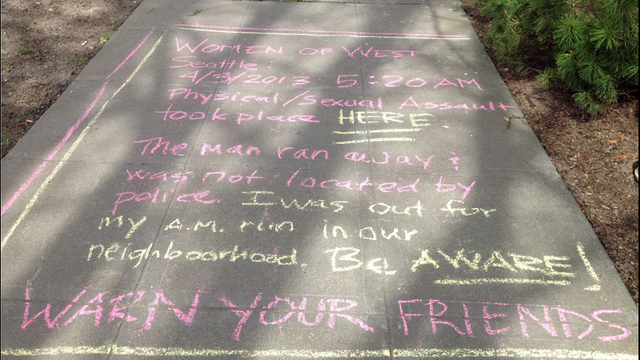 WOMEN OF WEST
Seattle.
5:20 AM
Physical/Sexual Assault
took place HERE.
The man ran away &
was not located by
police. I was out for
my A.M. run in our
neighboorhood. Be AWARE!
WARN YOUR FRIENDS